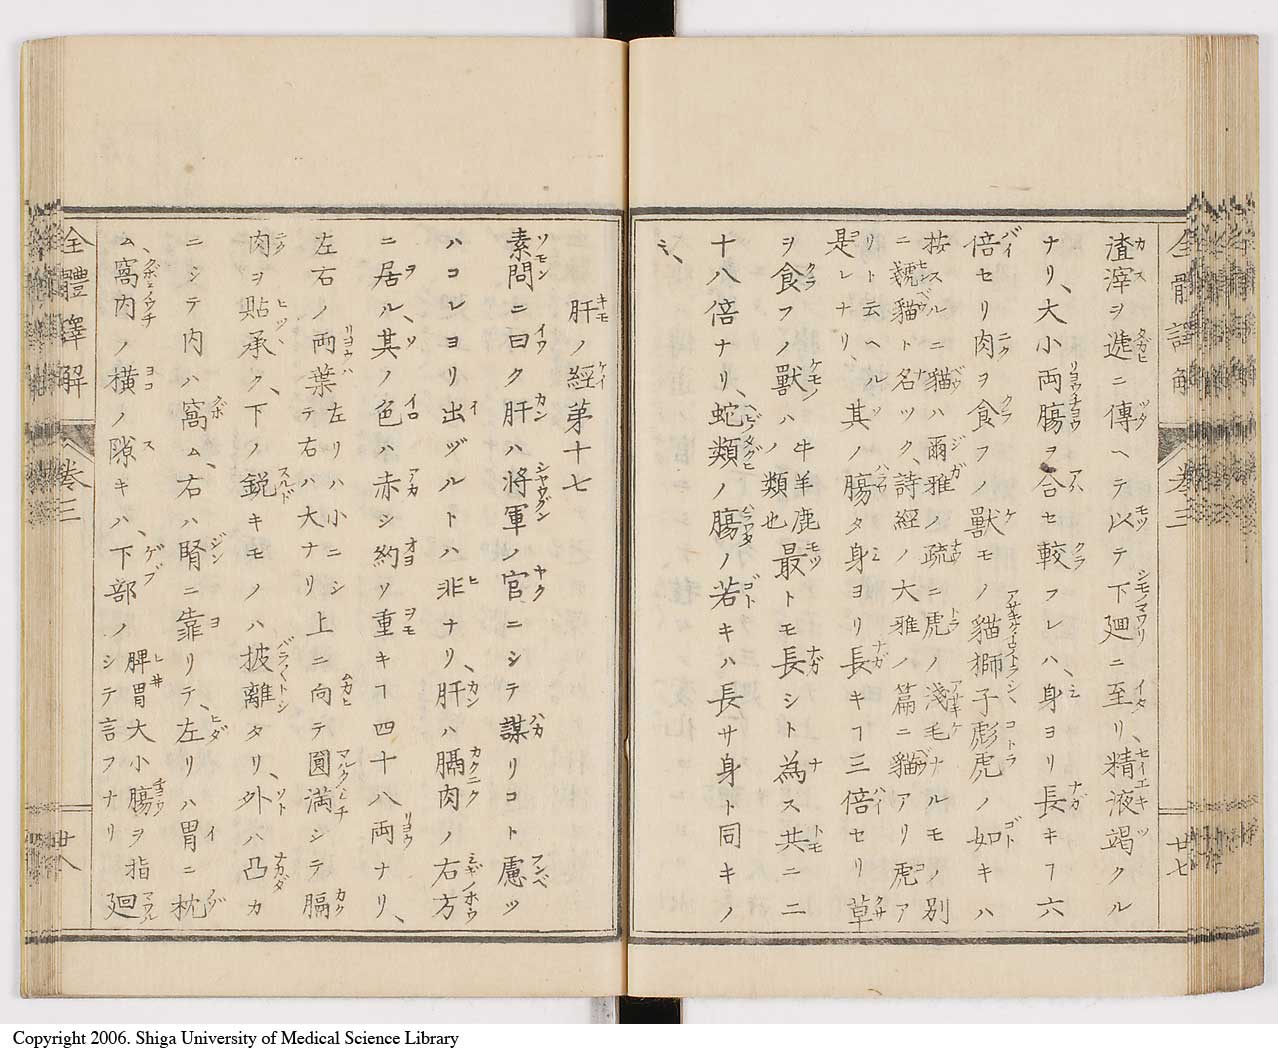 渣滓ヲ遞ニ傳ヘテ以テ下廻ニ至リ、精液竭クル
ナリ、大小両膓ヲ合セ較フレハ、身ヨリ長キヿ六
倍セリ肉ヲ食フノ獸モノ貓獅子彪虎ノ如キハ
按スルニ貓ハ爾雅ノ疏ニ虎ノ淺毛ナルモノ別
ニ虦貓ト名ツク、詩經ノ大雅ノ篇ニ貓アリ虎ア
リト云ヘル
是レナリ、其ノ膓タ身ヨリ長キヿ三倍セリ草
ヲ食フノ獸ハ牛羊鹿ノ類也最トモ長シト為ス共ニ二
十八倍ナリ、蛇類ノ膓ノ若キハ長サ身ト同キノ
ミ、
全體譯解
卷三
廿七
肝ノ經第十七
素問ニ曰ク肝ハ將軍ノ官ニシテ謀リコト慮ツ
ハコレヨリ出ヅルトハ非ナリ、肝ハ膈肉ノ右方
ニ居ル、其ノ色ハ赤シ約ソ重キヿ四十八両ナリ、
左右ノ両葉左リハ小ニシテ右ハ大ナリ上ニ向テ圓満シテ膈
肉ヲ貼承ク、下ノ鋭キモノハ披離タリ、外ハ凸カ
ニシテ内ハ窩ム、右ハ腎ニ靠リテ、左リハ胃ニ枕
ム、窩内ノ横ノ隙キハ、下部ノ脾胃大小膓ヲ指シテ言フナリ廻
全體譯解
卷三
廿八
Copyright 2006. Shiga University of Medical Science Library